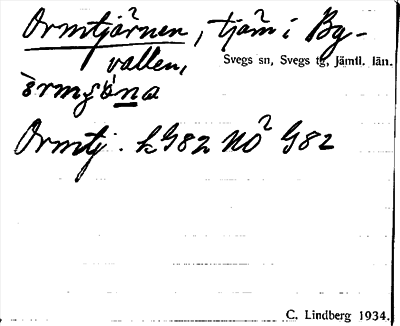 Ormtjärnen, tjärn i By-
vallen,
Svegs sn, Svegs tg, Jämtl. län.
Ormtj. k G82 NO² G82
C. Lindberg 1934.